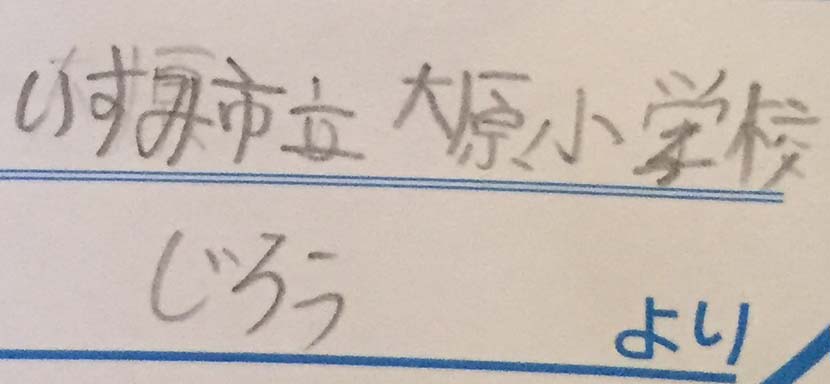 いすみ市立 大原小学校
じろう
より